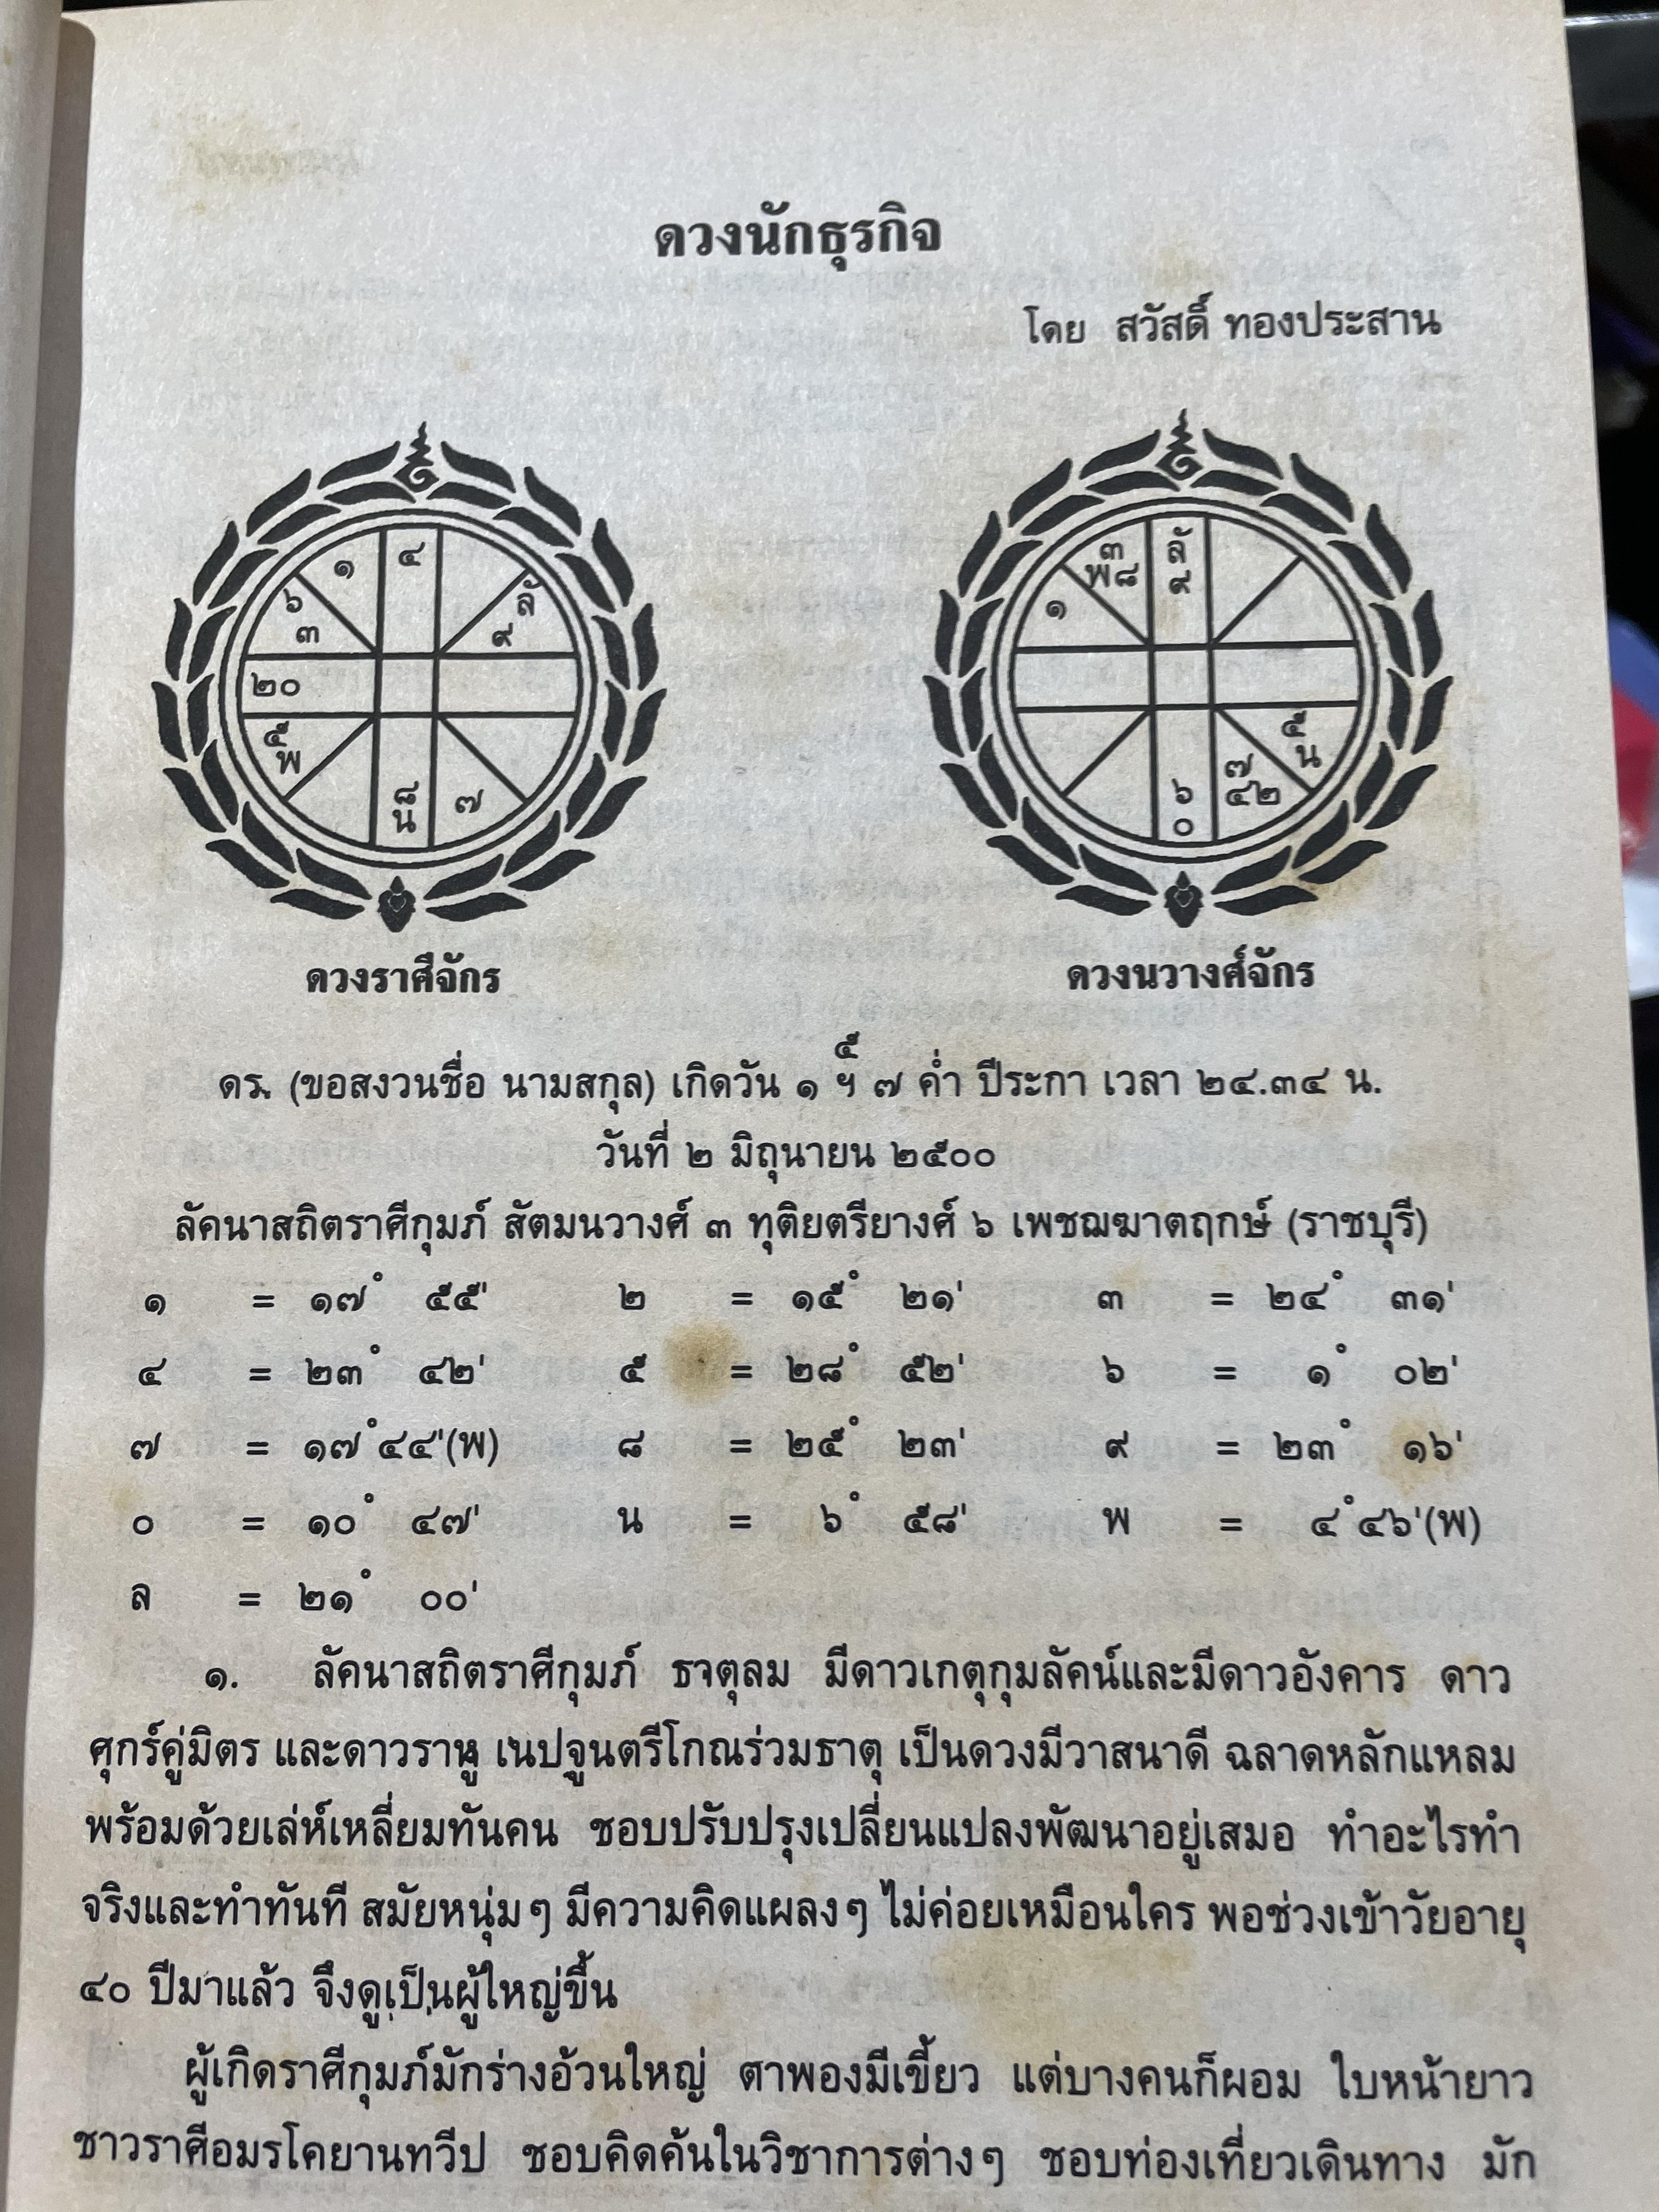 ดวงนักธุรกิจ
โดย สวัสดิ์ ทองประสาน
๑ ๔
๖ ๓
ลั ๙
๒๐
๕ พ
๘ น
๗
๓ พ๘
ลั ๙
๑
๕ น
๗ ๔๒
๖ ๐
ดวงราศีจักร ดวงนวางศ์จักร
๕
ดร. (ขอสงวนชื่อ นามสกุล) เกิดวัน ๑ ฯ ๗ ค่ำ ปีระกา เวลา ๒๔.๓๔ น.
วันที่ ๒ มิถุนายน ๒๕๐๐
ลัคนาสถิตราศีกุมภ์ สัตมนวางศ์ ๓ ทุติยตรียางศ์ ๖ เพชฌฆาตฤกษ์ (ราชบุรี)
๑ = ๑๗° ๕๕' ๒ = ๑๕° ๒๑' ๓ = ๒๔° ๓๑'
๔ = ๒๓° ๔๒' ๕ = ๒๘° ๕๒' ๖ = ๑° ๐๒'
๗ = ๑๗°๔๔'(พ) ๘ = ๒๕° ๒๓' ๙ = ๒๓° ๑๖'
๐ = ๑๐° ๔๗' น = ๖° ๕๘' พ = ๔°๔๖'(พ)
ล = ๒๑° ๐๐'
๑. ลัคนาสถิตราศีกุมภ์ ธาตุลม มีดาวเกตุกุมลัคน์และมีดาวอังคาร ดาว
ศุกร์คู่มิตร และดาวราหู เนปจูนตรีโกณร่วมธาตุ เป็นดวงมีวาสนาดี ฉลาดหลักแหลม
พร้อมด้วยเล่ห์เหลี่ยมทันคน ชอบปรับปรุงเปลี่ยนแปลงพัฒนาอยู่เสมอ ทำอะไรทำ
จริงและทำทันที สมัยหนุ่มๆ มีความคิดแผลงๆ ไม่ค่อยเหมือนใคร พอช่วงเข้าวัยอายุ
๔๐ ปีมาแล้ว จึงดูเป็นผู้ใหญ่ขึ้น
ผู้เกิดราศีกุมภ์มักร่างอ้วนใหญ่ ตาพองมีเขี้ยว แต่บางคนก็ผอม ใบหน้ายาว
ชาวราศีอมรโคยานทวีป ชอบคิดค้นในวิชาการต่างๆ ชอบท่องเที่ยวเดินทาง มัก